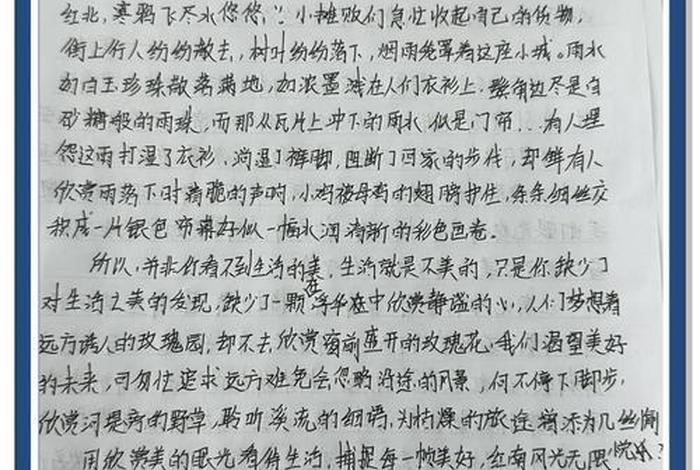 红北，寒鸦飞尽水悠悠，”小摊贩们急忙收起自己的货物，
街上行人纷纷散去，树叶纷纷落下，烟雨笼罩着这座小城。雨水
如白玉珍珠散落满地，如浓墨溅在人们衣衫上。墙角边尽是白
砂糖般的雨珠，而那从瓦片上冲下的雨水似是门帘…有人埋
怨这雨打湿了衣衫，淌湿了裤脚，阻断了回家的步伐，却鲜有人
欣赏雨落下时清脆的声响，小鸡被母鸡的翅膀护住，条条细丝交
织成一片银色 布幕好似一幅水润清新的彩色画卷。
所以，并非你看不到生活的美，生活就是不美的，只是你缺少了
对生活之美的发现，缺少了一颗在浮华中欣赏静谧的心，人们梦想着
远方诱人的玫瑰园，却不去欣赏窗前盛开的玫瑰花，我们渴望美好
的未来，可匆忙追求远方难免会忽略沿途的风景，何不停下脚步，
欣赏河堤旁的野草，聆听溪流的细语，为枯燥的旅途增添几丝
用欣赏美的眼光看待生活，捕捉每一帧美好，江南风光无限